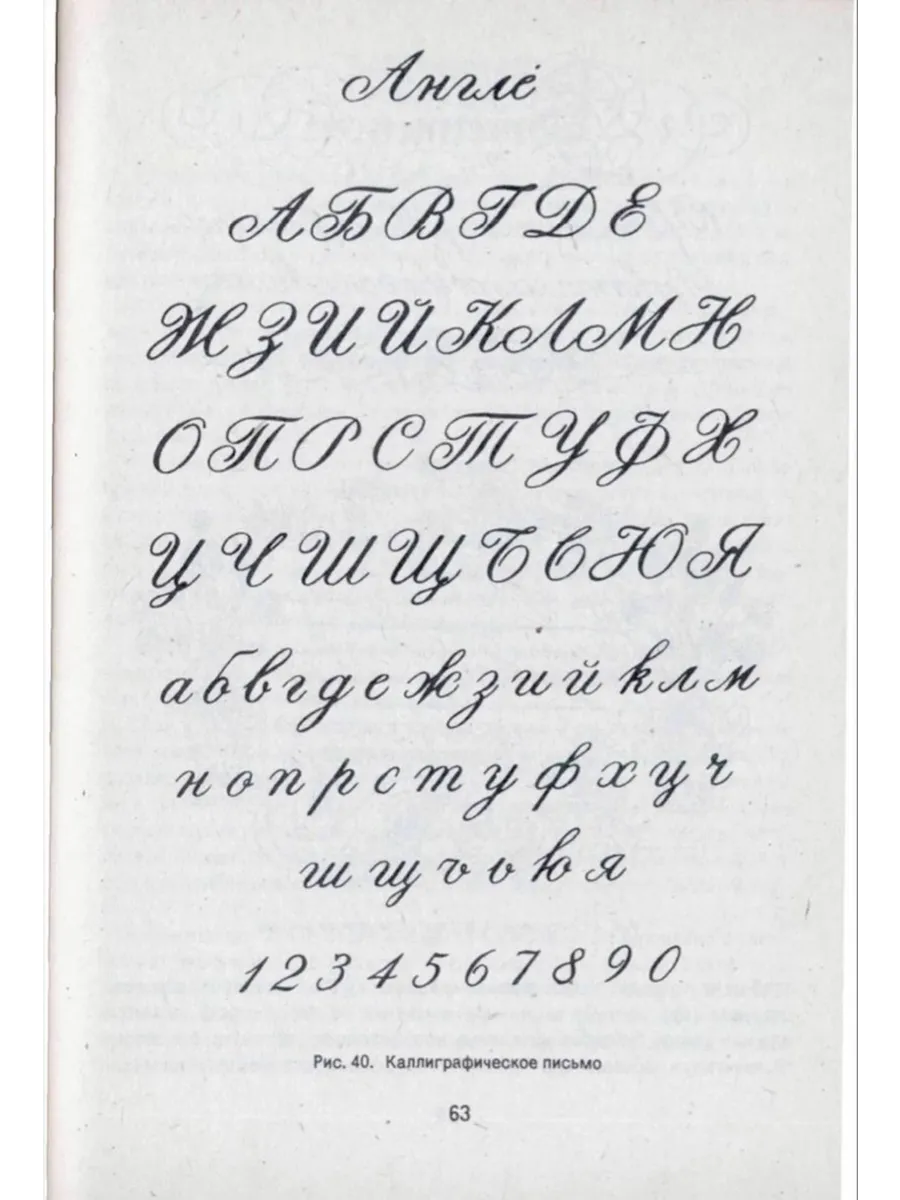 Англе
АБВГДЕ
ЖЗИЙКЛМН
ОПРСТУФХ
ЦЧШЩЪЬЮЯ
абвгдежзийклм
нопрстуфхцч
шщъьюя
1234567890
Рис. 40. Каллиграфическое письмо
63